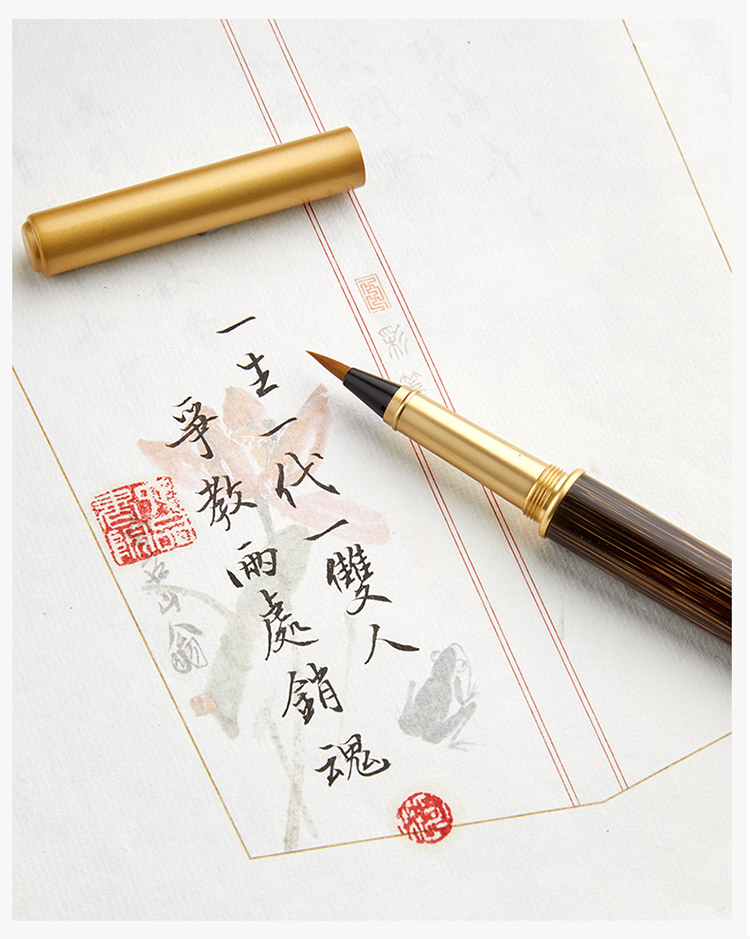 一生一代一雙人
爭教兩處銷魂